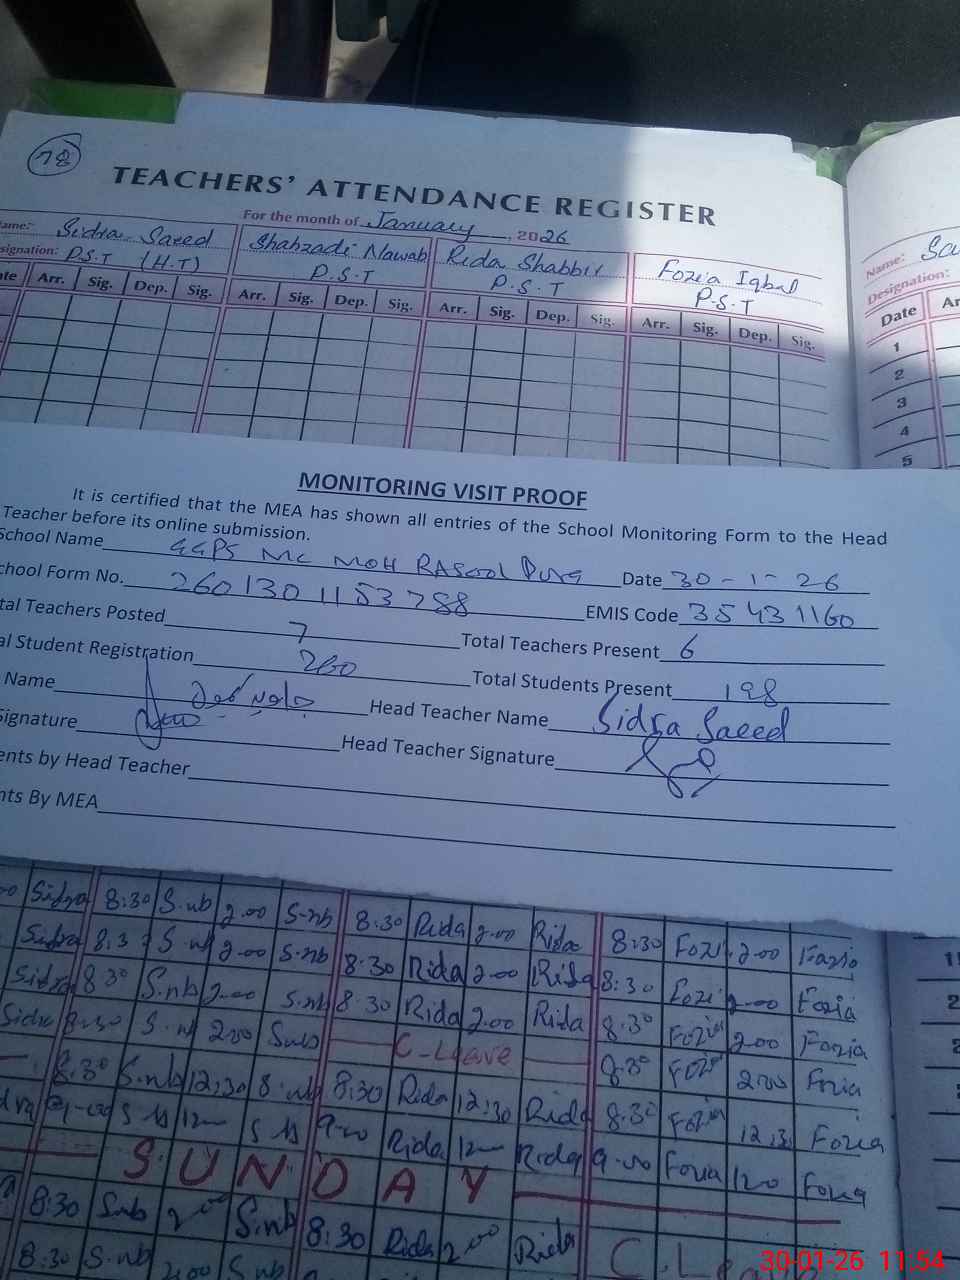 78
TEACHERS' ATTENDANCE REGISTER
For the month of January, 2026
ame: Sidra Saeed Shahzadi Nawab Rida Shabbir Fozia Iqbal
signation: P.S.T (H.T) P.S.T P.S.T P.S.T
ate Arr. Sig. Dep. Sig. Arr. Sig. Dep. Sig. Arr. Sig. Dep. Sig. Arr. Sig. Dep. Sig.
Name: Sa
Designation:
Date Ar
1
2
3
4
5
MONITORING VISIT PROOF
It is certified that the MEA has shown all entries of the School Monitoring Form to the Head
Teacher before its online submission.
School Name GGPS MC MOH RASOOL PURA Date 30-1-26
chool Form No. 2601301153788 EMIS Code 35431160
tal Teachers Posted 7 Total Teachers Present 6
al Student Registration 260 Total Students Present 198
Name Head Teacher Name Sidra Saeed
Signature Head Teacher Signature
ents by Head Teacher
nts By MEA
Sidra 8:30 S.nb 2.00 S.nb 8:30 Rida 2.00 Rida 8:30 Fozi 2.00 Fozia
Sidra 8:3 S.nb 2.00 S.nb 8:30 Rida 2.00 Rida 8:30 Fozi 2.00 Fozia
Sidra 8:30 S.nb 2.00 S.nb 8:30 Rida 2.00 Rida 8:30 Fozia 2.00 Fozia
Sidra 8:30 S.nb 2.00 S.nb C-Leave 8:30 Fozi 2.00 Fozia
8:30 S.nb 12:30 S.nb 8:30 Rida 12:30 Rida 8:30 Fozia 12:3 Fozia
dra 9-00 12 9-00 Rida 12 Rida 9-00 Fozia 12 Fozia
SUNDAY
8:30 S.nb 2.00 S.nb 8:30 Rida 2.00 Rida C.Leave
8:30 S.nb 2.00 S.nb
30-01-26 11:54